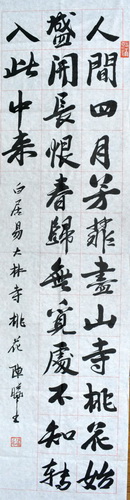 人間四月芳菲盡山寺桃花始
盛開長恨春歸無覓處不知转
入此中来
白居易大林寺桃花